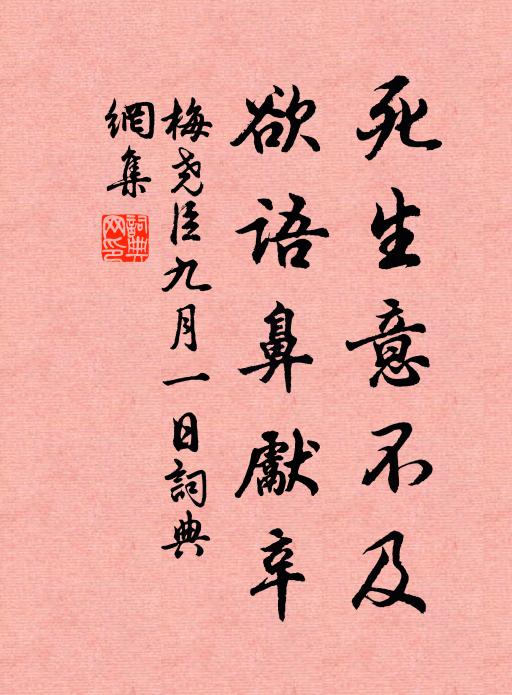 死生意不及
欲語鼻獻辛
梅尧臣九月一日詞典
網集
詞典網印